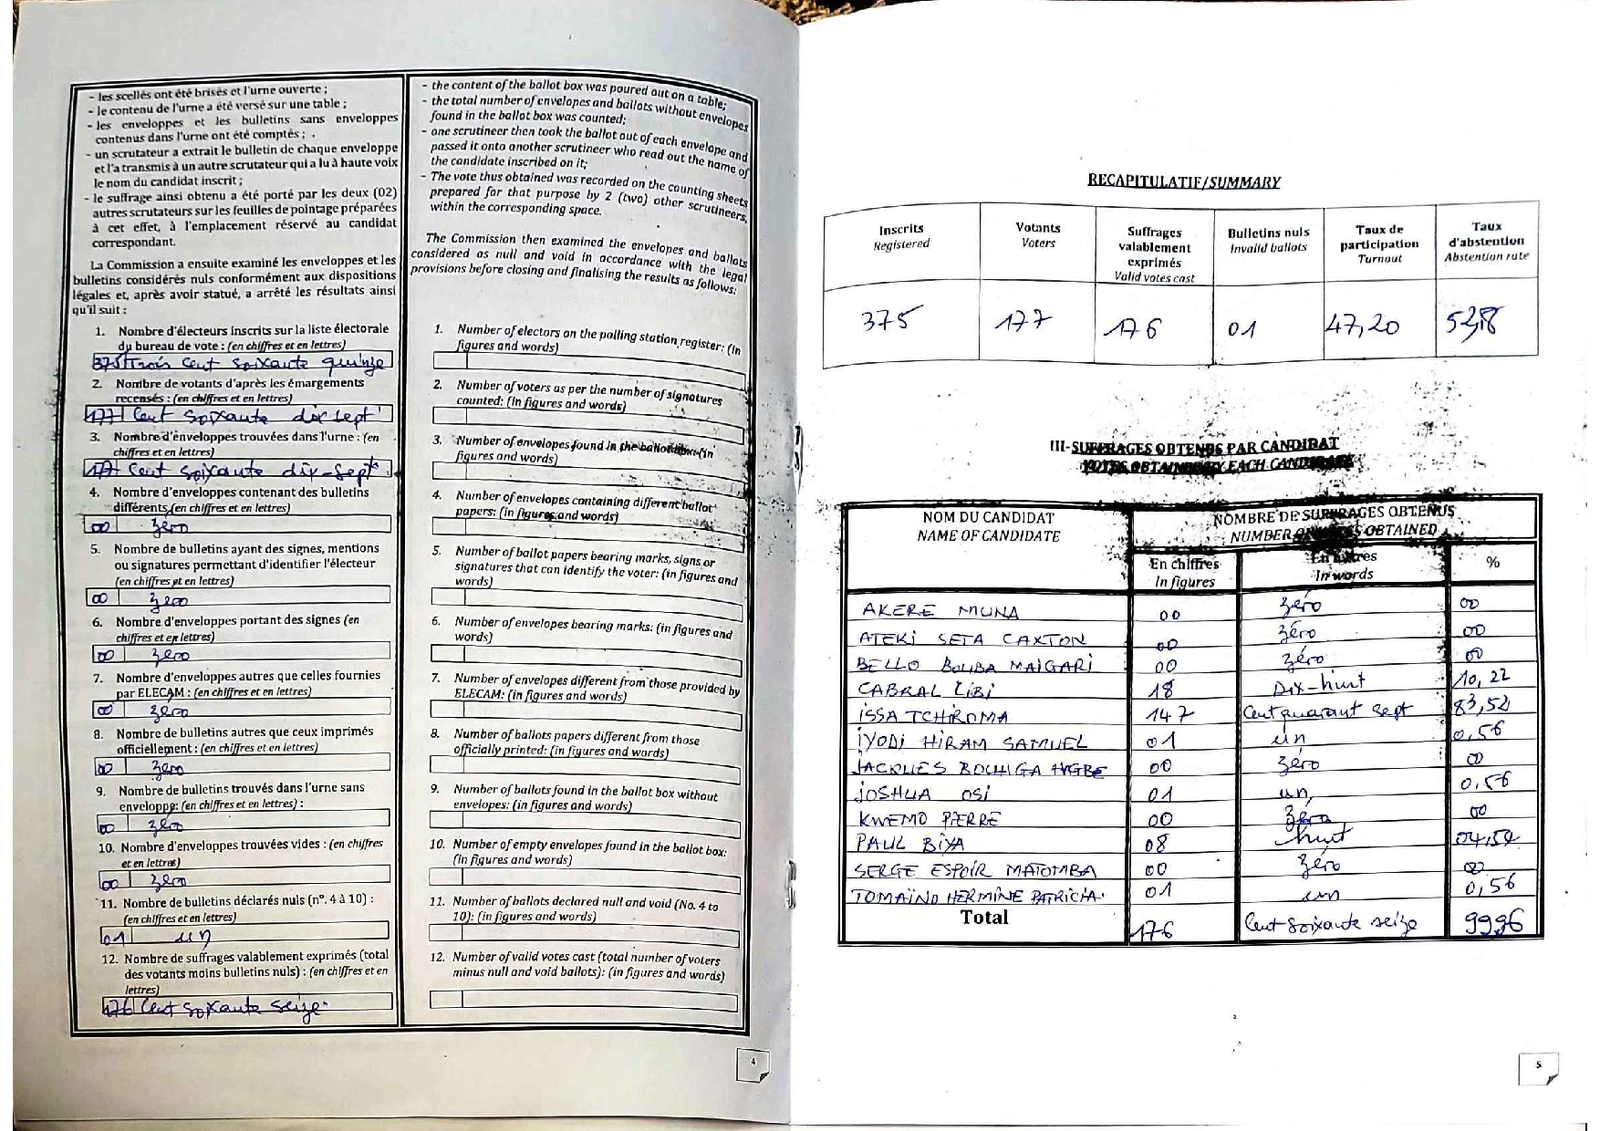 - les scellés ont été brisés et l'urne ouverte ;
- le contenu de l'urne a été versé sur une table ;
- les enveloppes et les bulletins sans enveloppes
contenus dans l'urne ont été comptés ; .
- un scrutateur a extrait le bulletin de chaque enveloppe
et l'a transmis à un autre scrutateur qui a lu à haute voix
le nom du candidat inscrit ;
- le suffrage ainsi obtenu a été porté par les deux (02)
autres scrutateurs sur les feuilles de pointage préparées
à cet effet, à l'emplacement réservé au candidat
correspondant.
La Commission a ensuite examiné les enveloppes et les
bulletins considérés nuls conformément aux dispositions
légales et, après avoir statué, a arrêté les résultats ainsi
qu'il suit :
1. Nombre d'électeurs inscrits sur la liste électorale
du bureau de vote : (en chiffres et en lettres)
375 Trois cent soixante quinze
2. Nombre de votants d'après les émargements
recensés : (en chiffres et en lettres)
177 Cent soixante dix sept
3. Nombre d'enveloppes trouvées dans l'urne : (en
chiffres et en lettres)
177 Cent soixante dix-sept
4. Nombre d'enveloppes contenant des bulletins
différents (en chiffres et en lettres)
00 zéro
5. Nombre de bulletins ayant des signes, mentions
ou signatures permettant d'identifier l'électeur
(en chiffres et en lettres)
00 zéro
6. Nombre d'enveloppes portant des signes (en
chiffres et en lettres)
00 zéro
7. Nombre d'enveloppes autres que celles fournies
par ELECAM : (en chiffres et en lettres)
00 zéro
8. Nombre de bulletins autres que ceux imprimés
officiellement : (en chiffres et en lettres)
00 zéro
9. Nombre de bulletins trouvés dans l'urne sans
enveloppe: (en chiffres et en lettres) :
00 zéro
10. Nombre d'enveloppes trouvées vides : (en chiffres
et en lettres)
00 zéro
11. Nombre de bulletins déclarés nuls (n°. 4 à 10) :
(en chiffres et en lettres)
01 un
12. Nombre de suffrages valablement exprimés (total
des votants moins bulletins nuls) : (en chiffres et en
lettres)
176 Cent soixante seize
- the content of the ballot box was poured out on a table;
- the total number of envelopes and ballots without envelopes
found in the ballot box was counted;
- one scrutineer then took the ballot out of each envelope and
passed it onto another scrutineer who read out the name of
the candidate inscribed on it;
- The vote thus obtained was recorded on the counting sheets
prepared for that purpose by 2 (two) other scrutineers,
within the corresponding space.
The Commission then examined the envelopes and ballots
considered as null and void in accordance with the legal
provisions before closing and finalising the results as follows:
1. Number of electors on the polling station register: (in
figures and words)
2. Number of voters as per the number of signatures
counted: (in figures and words)
3. Number of envelopes found in the ballot box: (in
figures and words)
4. Number of envelopes containing different ballot
papers: (in figures and words)
5. Number of ballot papers bearing marks, signs or
signatures that can identify the voter: (in figures and
words)
6. Number of envelopes bearing marks: (in figures and
words)
7. Number of envelopes different from those provided by
ELECAM: (in figures and words)
8. Number of ballots papers different from those
officially printed: (in figures and words)
9. Number of ballots found in the ballot box without
envelopes: (in figures and words)
10. Number of empty envelopes found in the ballot box:
(in figures and words)
11. Number of ballots declared null and void (No. 4 to
10): (in figures and words)
12. Number of valid votes cast (total number of voters
minus null and void ballots): (in figures and words)
4
RECAPITULATIF/SUMMARY
Inscrits Registered | Votants Voters | Suffrages valablement exprimés Valid votes cast | Bulletins nuls Invalid ballots | Taux de participation Turnout | Taux d'abstention Abstention rate
375 | 177 | 176 | 01 | 47,20 | 52,8
III-SUFFRAGES OBTENUS PAR CANDIDAT
VOTES OBTAINED BY EACH CANDIDATE
NOM DU CANDIDAT | NOMBRE DE SUFFRAGES OBTENUS
NAME OF CANDIDATE | NUMBER OF VOTES OBTAINED
En chiffres | En lettres | %
In figures | In words
AKERE MUNA | 00 | zéro | 00
ATEKI SETA CAXTON | 00 | zéro | 00
BELLO BOUBA MAIGARI | 00 | zéro | 00
CABRAL LIBI | 18 | Dix-huit | 10,22
ISSA TCHIROMA | 147 | Cent quarant sept | 83,52
IYODI HIRAM SAMUEL | 01 | un | 0,56
JACQUES BOUHGA HAGBE | 00 | zéro | 00
JOSHUA OSI | 01 | un | 0,56
KWEMO PIERRE | 00 | zéro | 00
PAUL BIYA | 08 | huit | 04,54
SERGE ESPOIR MATOMBA | 00 | zéro | 00
TOMAÏNO HERMINE PATRICIA. | 01 | un | 0,56
Total | 176 | Cent soixante seize | 99,96
5